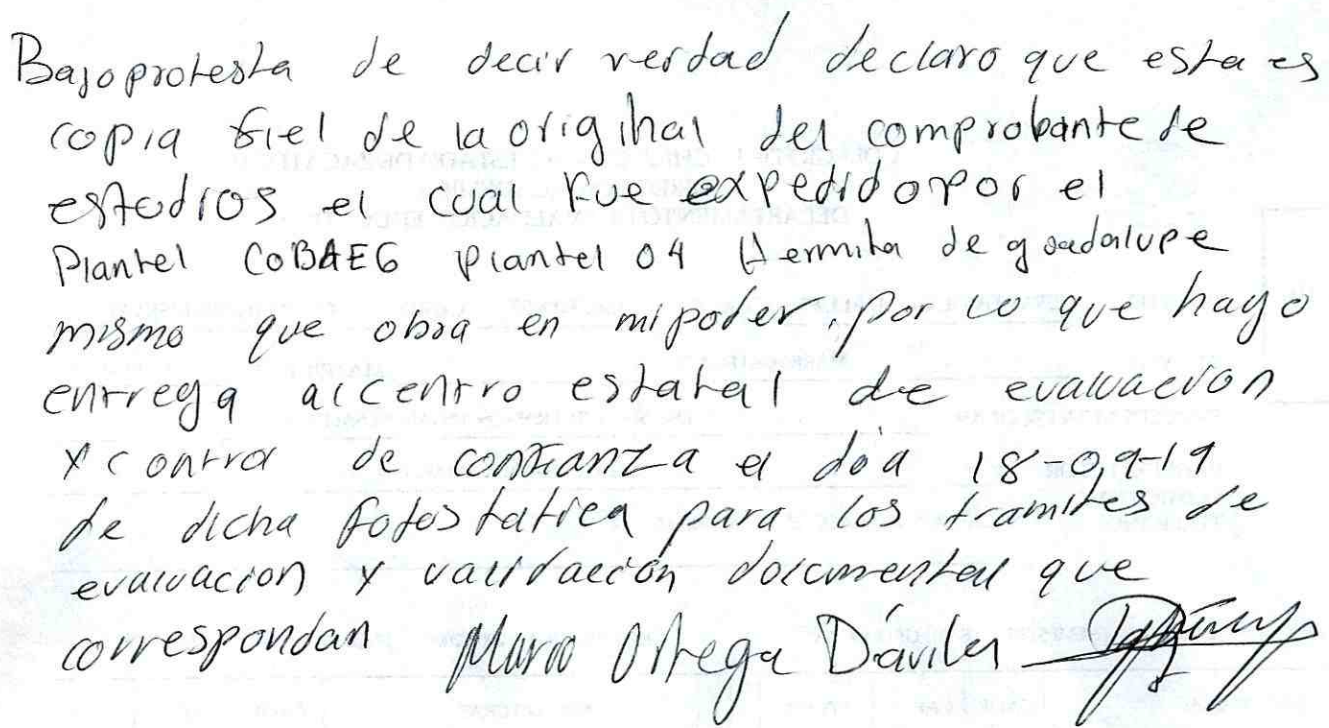 Bajo protesta de decir verdad declaro que esta es
copia fiel de la original del comprobante de
estudios el cual fue expedido por el
Plantel COBAEG plantel 04 Hermita de guadalupe
mismo que obra en mi poder, por lo que hago
entrega al centro estatal de evaluacion
y control de confianza el día 18-09-19
de dicha fotostatica para los tramites de
evaluacion y validación documental que
correspondan Mario Ortega Dávila